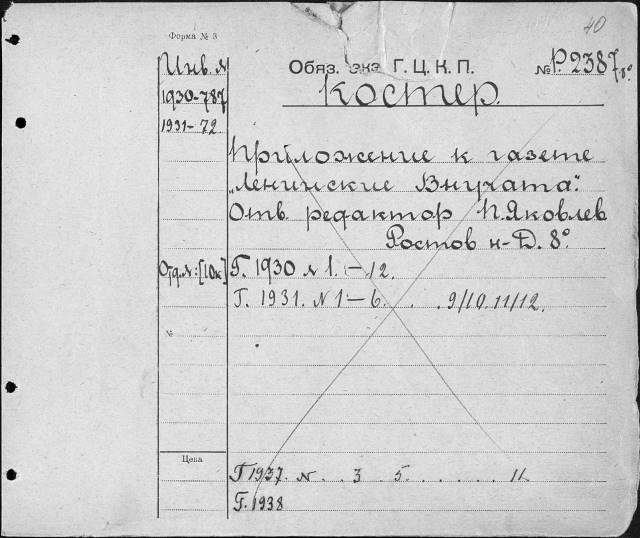 40
Форма № 3
Обяз. экз. Г. Ц. К. П.
№ Р.2387/8°
Инв. №
1930-787
1931-72
Костер.
Приложение к газете
"Ленинские Внучата".
Отв. редактор П. Яковлев
Ростов н-Д. 8°.
Отд. №: [10к]
Г. 1930 № 1.-12.
Г. 1931. N 1-6. . . 9/10. 11/12.
№
Цена
Г 1937. N. . 3 . 5. . . . . . 11.
Г. 1938